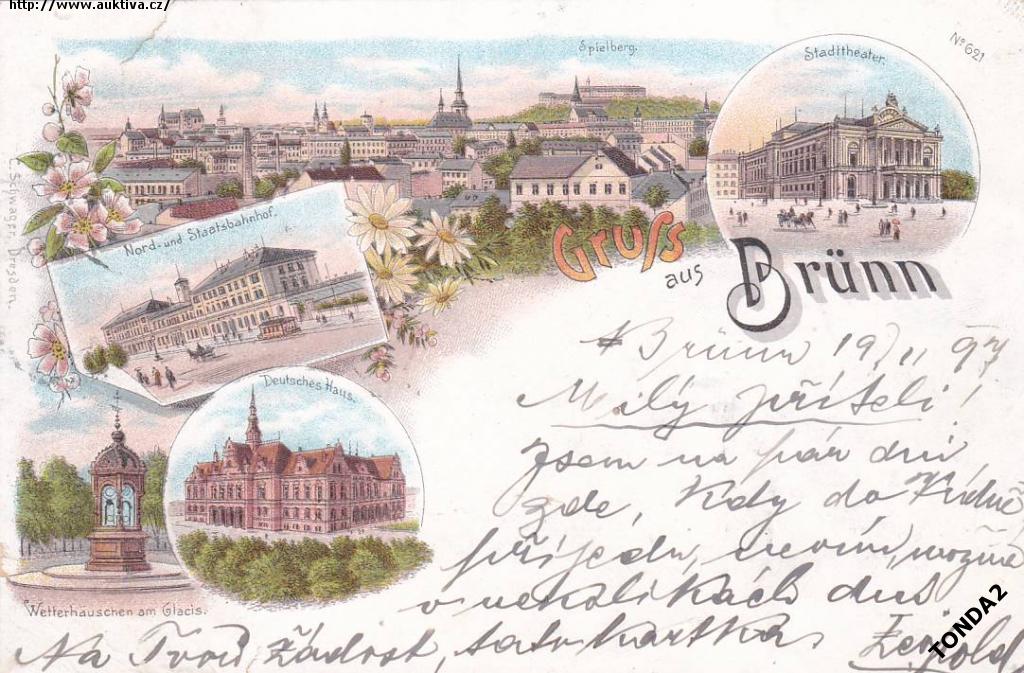 http://www.auktiva.cz/
Spielberg.
Stadttheater.
No 621
Nord- und Staatsbahnhof.
E. Schwager, Dresden.
Gruss
aus
Brünn
Deutsches Haus.
Wetterhäuschen am Glacis.
Brünn 19/11 97
Milý příteli!
Jsem na pár dní
zde, kdy do Vídně
přijedu, nevím, možná
v několikách dnů
Na Tvou žádost, tato kartka.
TONDA2